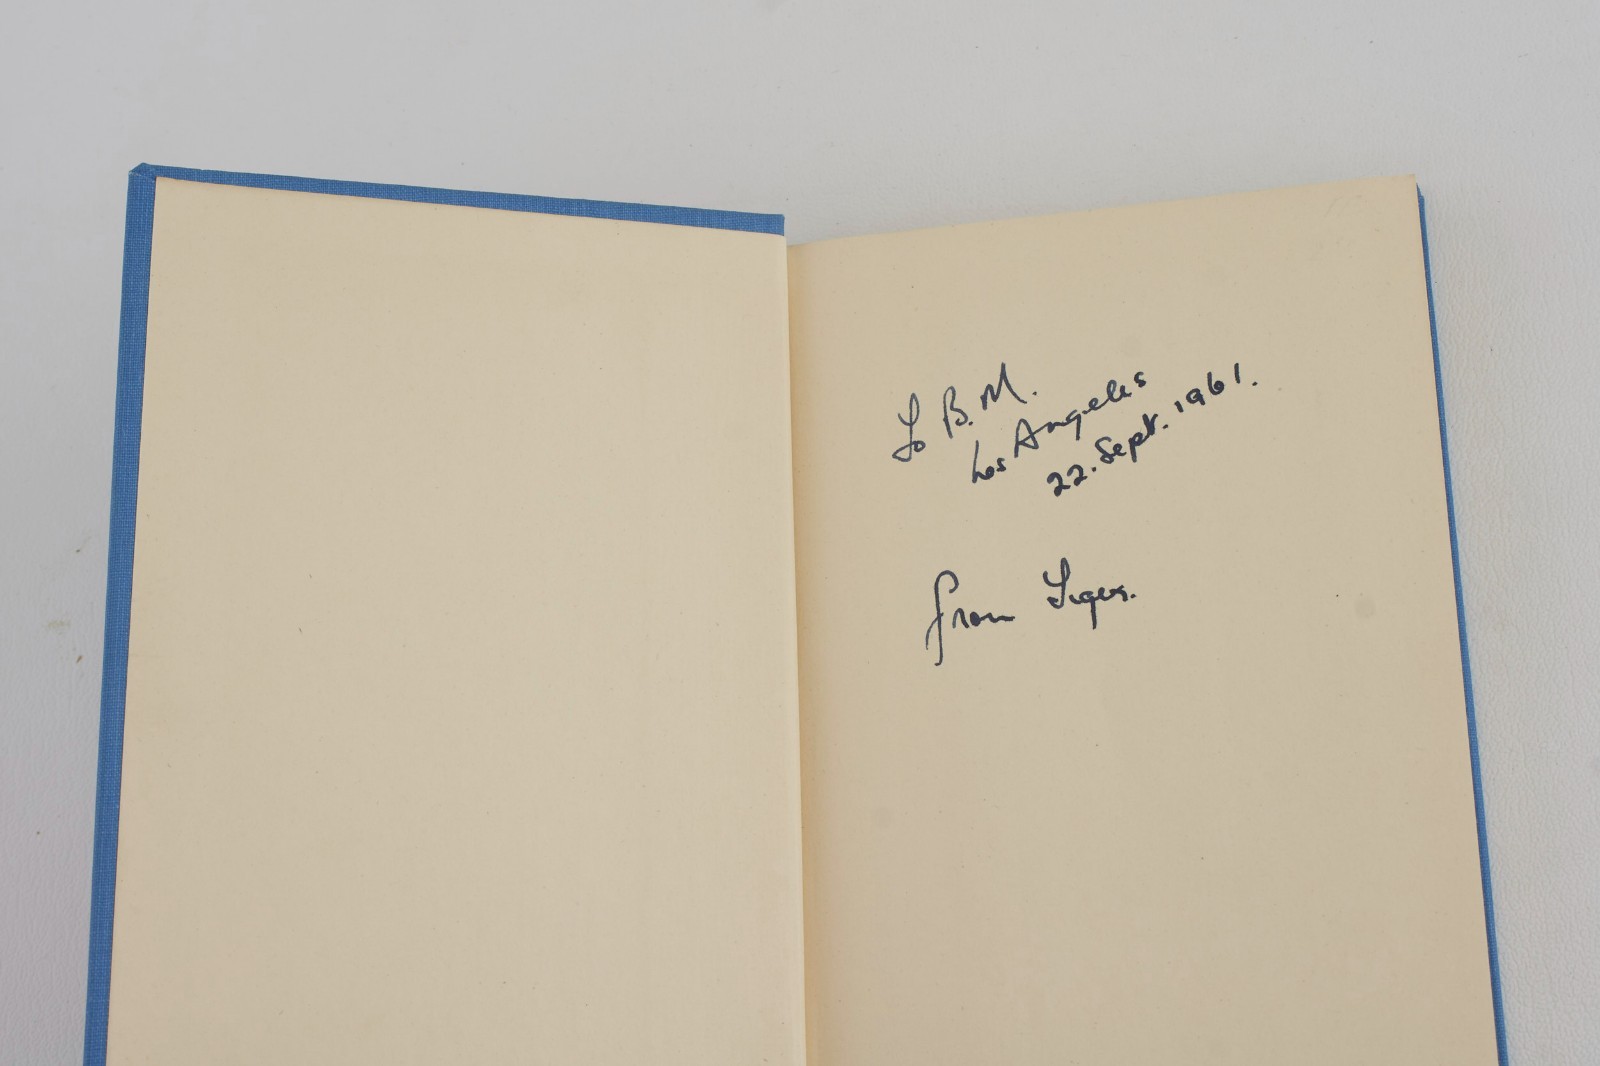 To B.M.
Los Angeles
22. Sept. 1961.
from Tiger.